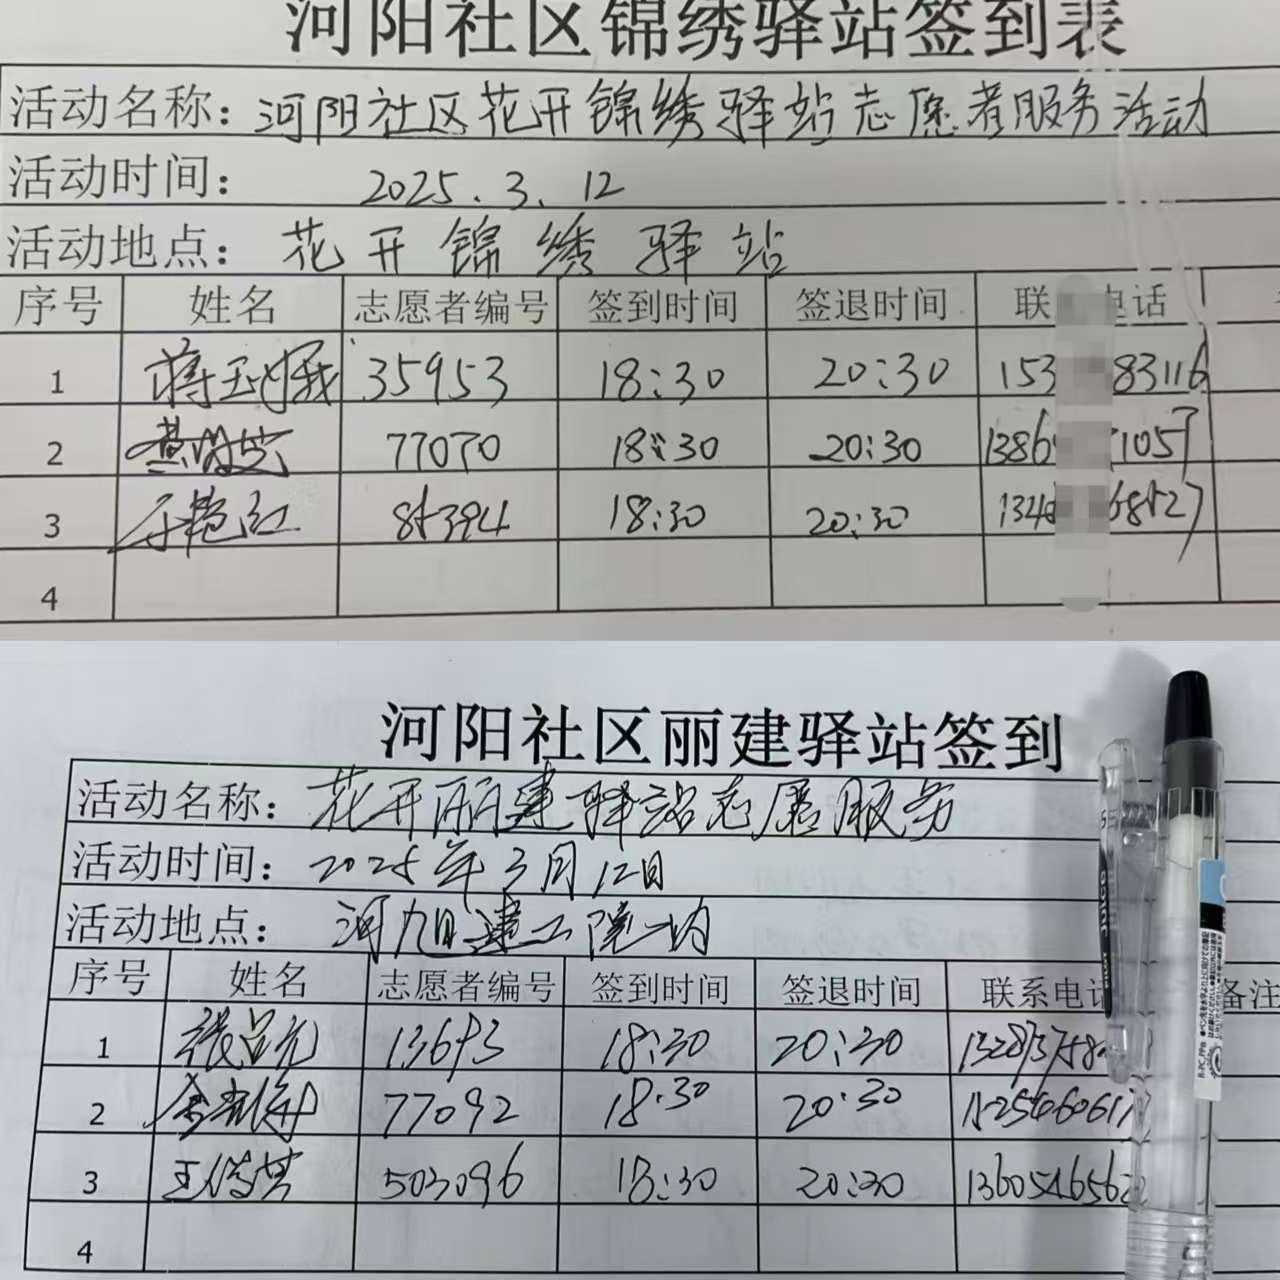 河阳社区锦绣驿站签到表
活动名称：河阳社区花开锦绣驿站志愿者服务活动
活动时间：2025.3.12
活动地点：花开锦绣驿站
序号 姓名 志愿者编号 签到时间 签退时间 联 电话
1 35953 18:30 20:30 153 83116
2 77070 18:30 20:30 1386 1057
3 于艳红 18:30 20:30 134
4
河阳社区丽建驿站签到
活动名称：花开丽建驿站志愿服务
活动时间：2025年3月12日
活动地点：
序号 姓名 志愿者编号 签到时间 签退时间 联系电话 备注
1 18:30 20:30
2 77092 18:30 20:30
3 503096 18:30 20:30
4